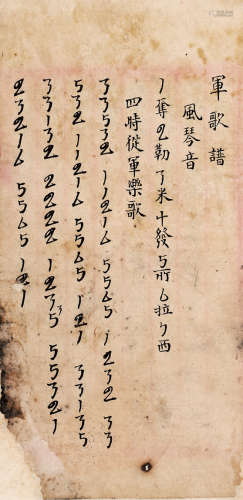 軍歌譜
風琴音
1奪2勒3米4發5所6拉7西
四時從軍樂歌
33532 11216 5565 1232 33
532 11216 5565 121 33135
33132 2222 12335 55321
23216 5565 121